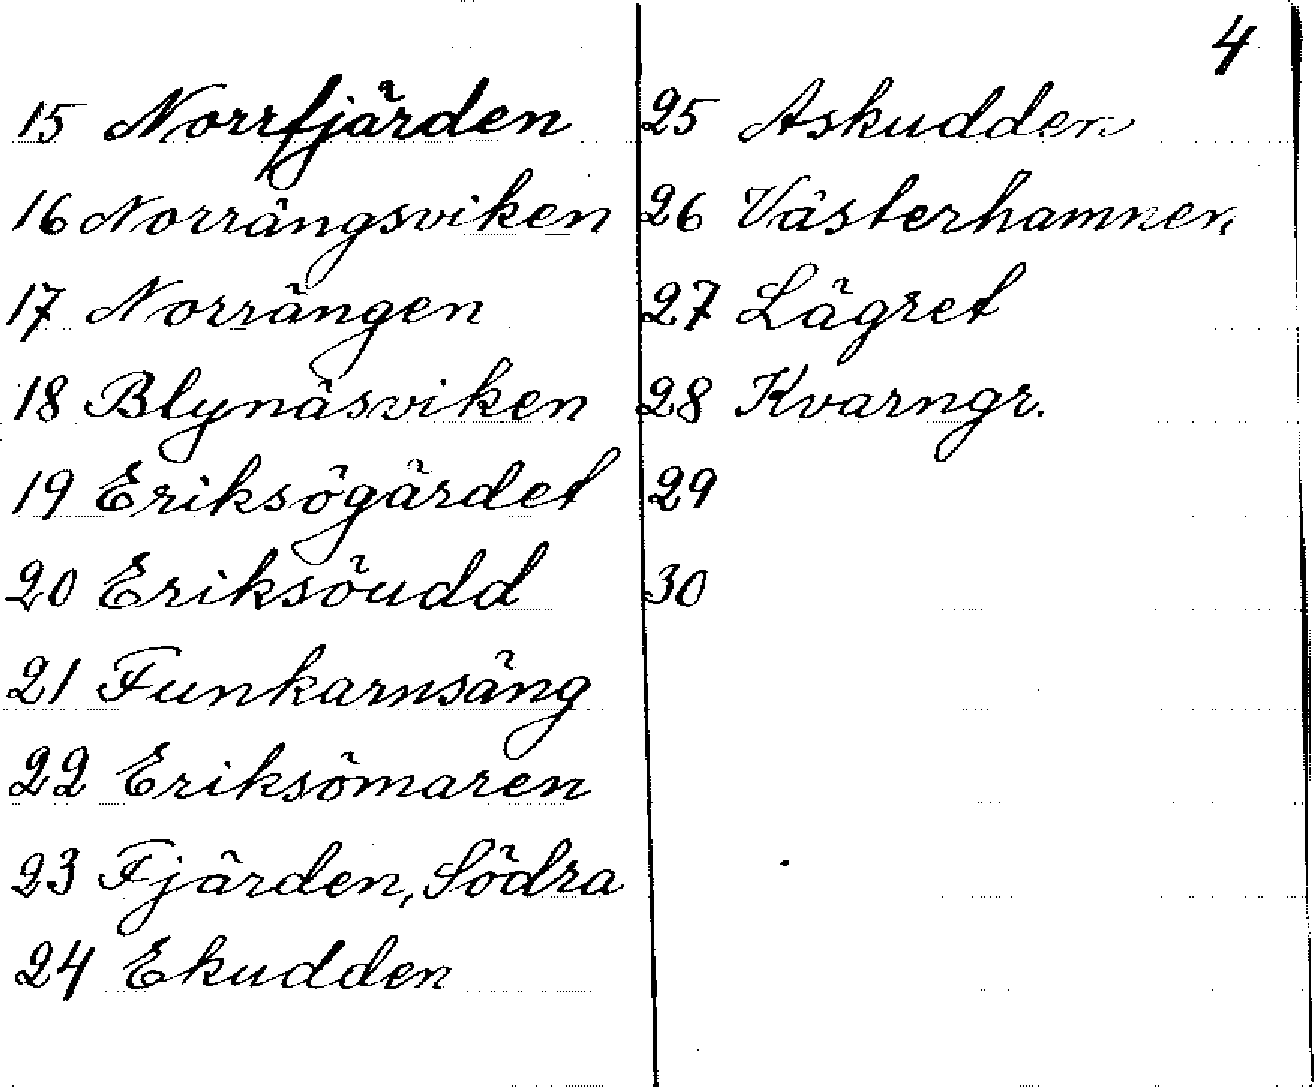 4
15 Norrfjärden
16 Norrängsviken
17 Norrängen
18 Blynäsviken
19 Eriksögärdet
20 Eriksöudd
21 Funkarnsäng
22 Eriksömaren
23 Fjärden, Södra
24 Ekudden
25 Askudden
26 Västerhamnen
27 Lägret
28 Kvarngr.
29
30